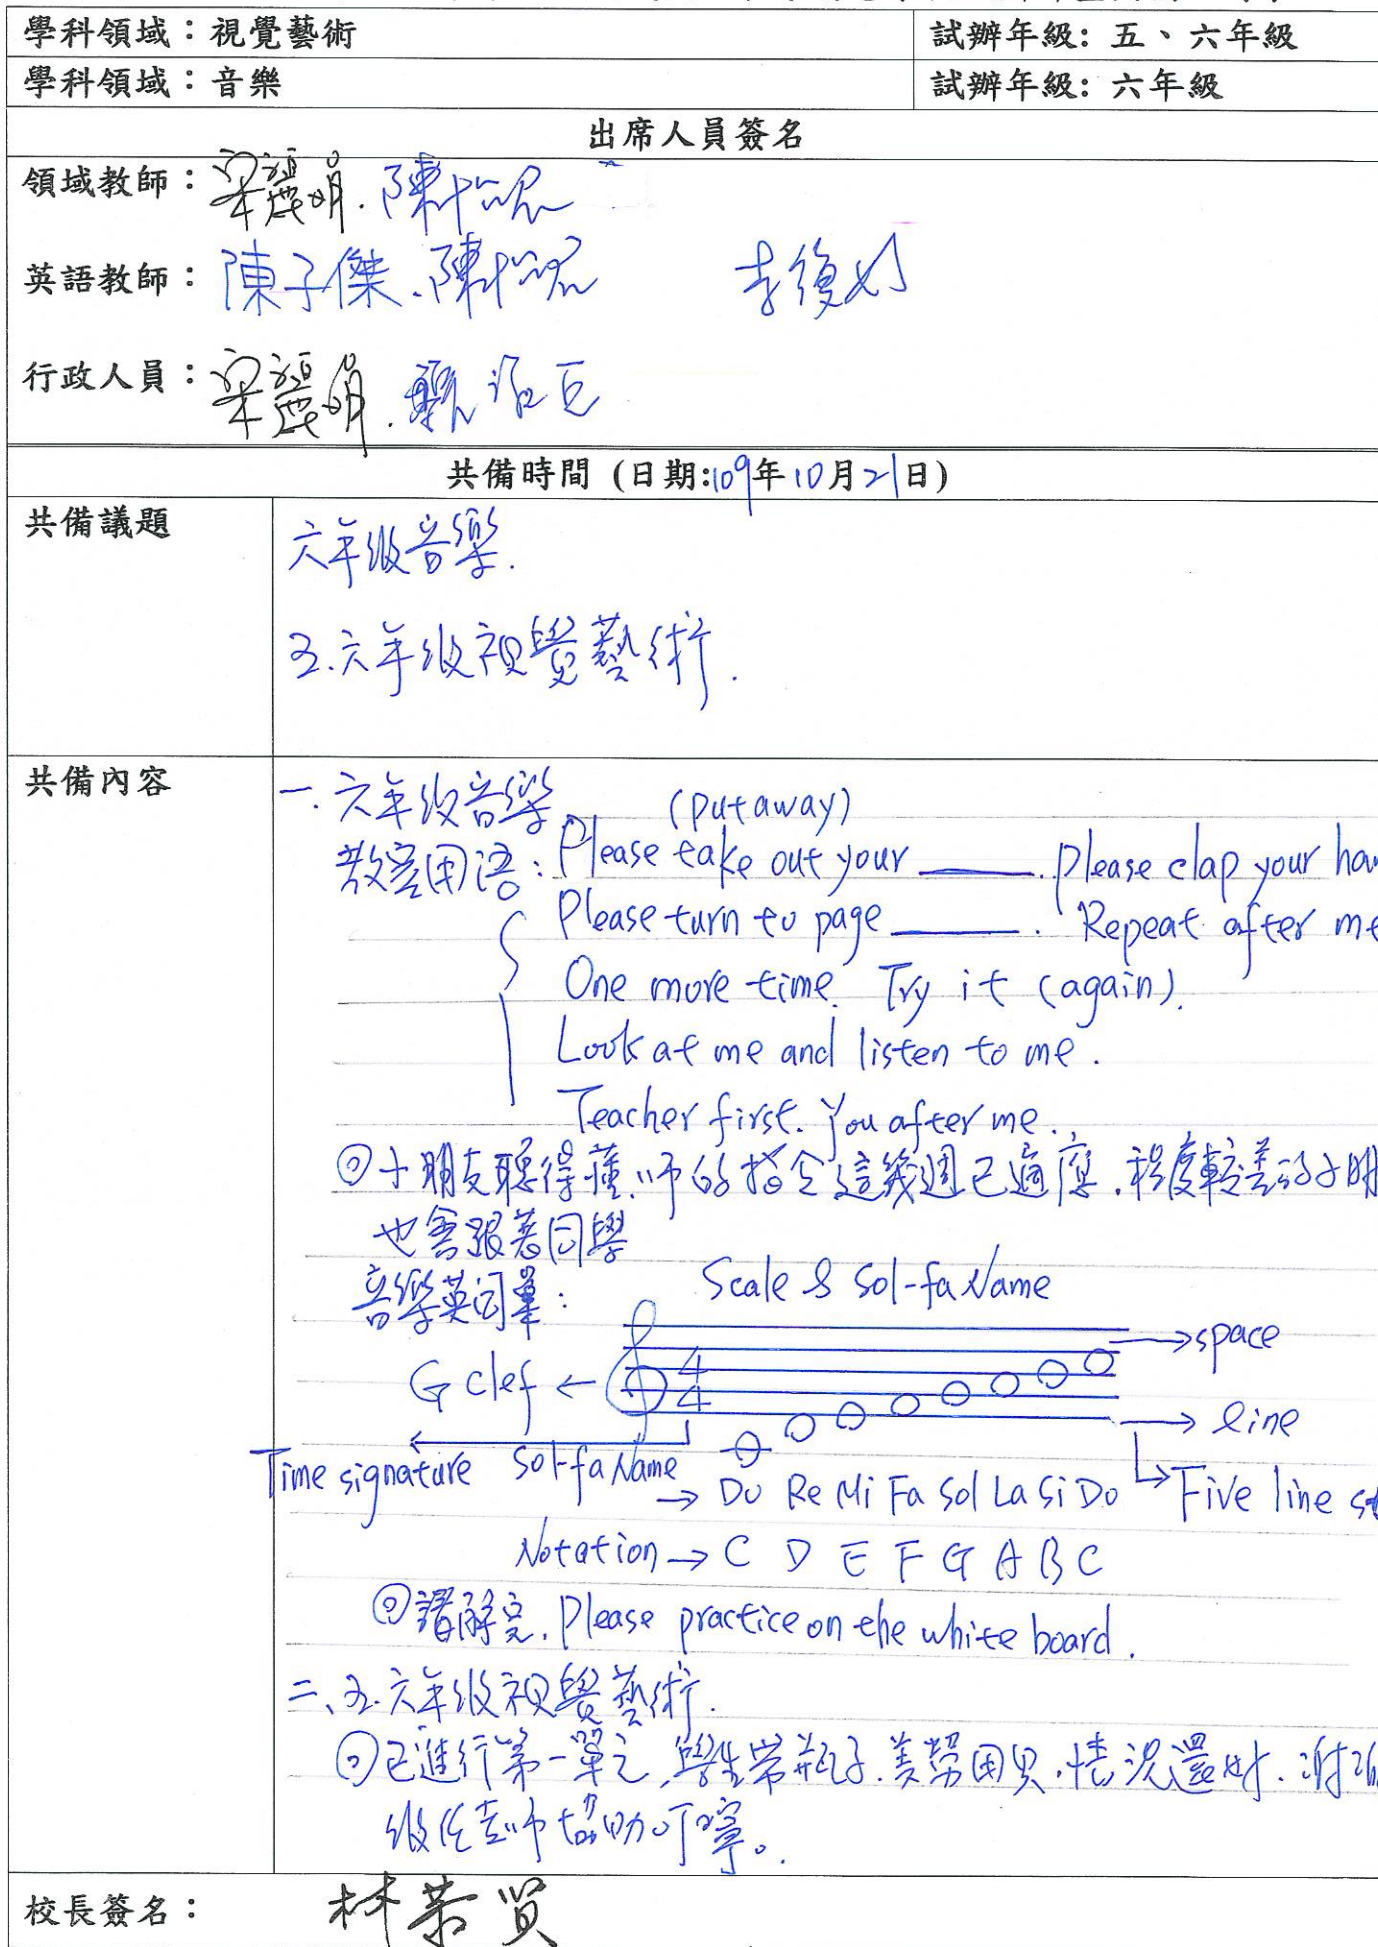 學科領域：視覺藝術 試辦年級: 五、六年級
學科領域：音樂 試辦年級: 六年級
出席人員簽名
領域教師：
英語教師：陳子傑
行政人員：
共備時間 (日期:109年10月21日)
共備議題
六年級音樂.
五.六年級視覺藝術.
共備內容
一. 六年級音樂
(put away)
教室用語: Please take out your ____. Please clap your
Please turn to page ____. Repeat after me
One more time. Try it (again).
Look at me and listen to me.
Teacher first. You after me.
◎小朋友聽得懂,師的指令這幾週已適應.程度較差的小朋
也會跟著同學
音樂英詞彙:
Scale & Sol-fa Name
space
G clef ←
4
4
line
Time signature Sol-fa Name
→ Do Re Mi Fa Sol La Si Do Five line
Notation → C D E F G A B C
◎講解完. Please practice on the white board.
二、五.六年級視覺藝術.
◎已進行第一單元,學生帶瓶子.美勞用具.情況還好.謝謝
級任老師協助叮嚀。
校長簽名：林恭賢